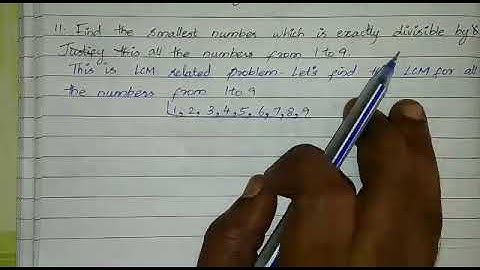 11. Find the smallest number which is exactly divisible by
Justify this all the numbers from 1 to 9.
This is LCM related problem. Let's find the LCM for all
the numbers from 1 to 9
1, 2, 3, 4, 5, 6, 7, 8, 9